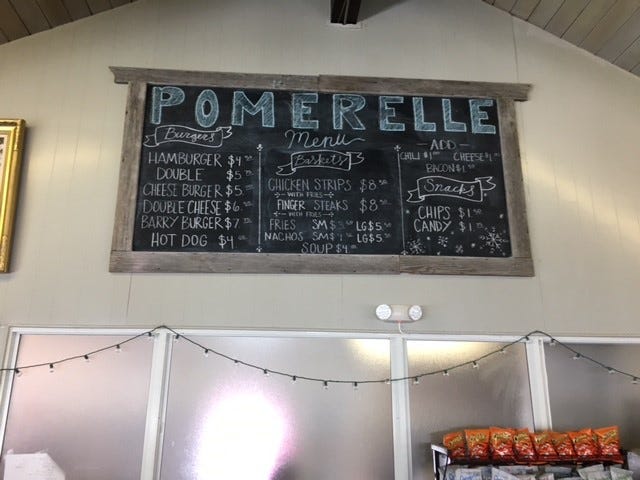 POMERELLE
Menu
Burgers
HAMBURGER $4
DOUBLE $5
CHEESE BURGER $5
DOUBLE CHEESE $6
BARRY BURGER $7
HOT DOG $4
Baskets
CHICKEN STRIPS $8
WITH FRIES
FINGER STEAKS $8
WITH FRIES
FRIES SM LG $5
NACHOS SM LG $5
SOUP $4
ADD
CHILI $1 CHEESE $1
BACON $1
Snacks
CHIPS $1
CANDY $1